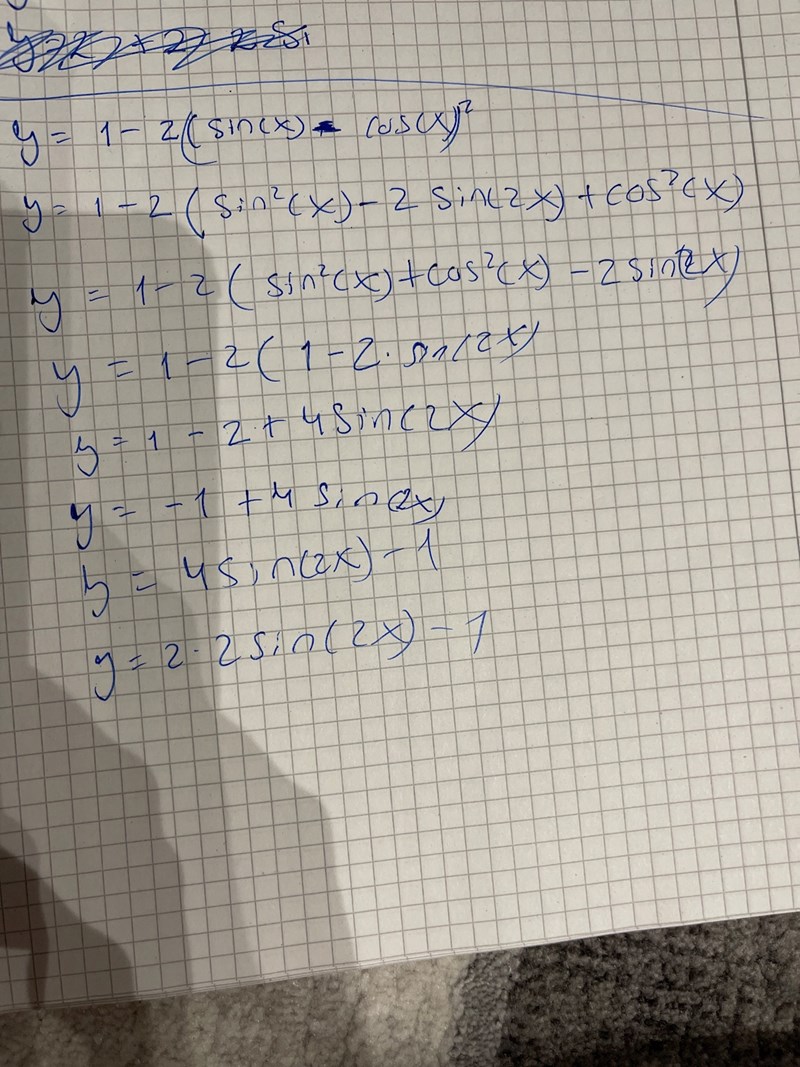 y = 1 - 2((sin(x) - cos(x))²
y = 1 - 2(sin²(x) - 2 sin(2x) + cos²(x)
y = 1 - 2(sin²(x) + cos²(x) - 2 sin(2x)
y = 1 - 2(1 - 2 · sin(2x)
y = 1 - 2 + 4 sin(2x)
y = -1 + 4 sin(2x)
y = 4 sin(2x) - 1
y = 2 · 2 sin(2x) - 1